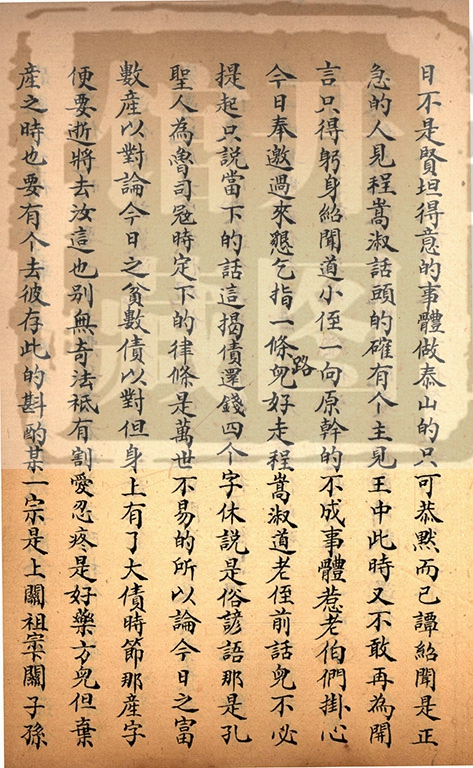 日不是賢坦得意的事體做泰山的只可恭黙而已譚紹聞是正
急的人見程嵩淑話頭的確有个主見王中此時又不敢再為開
言只得躬身紹聞道小侄一向原幹的不成事體惹老伯們掛心
今日奉邀過來懇乞指一條路兒好走程嵩淑道老侄前話兒不必
提起只說當下的話這揭債還錢四个字休説是俗諺語那是孔
聖人為魯司寇時定下的律條是萬世不易的所以論今日之富
數産以對論今日之貧數債以對但身上有了大債時節那産字
便要逝將去汝這也别無奇法祗有割愛忍疼是好藥方兒但棄
産之時也要有个去彼存此的斟酌某一宗是上關祖宗下關子孫
开图
馆藏